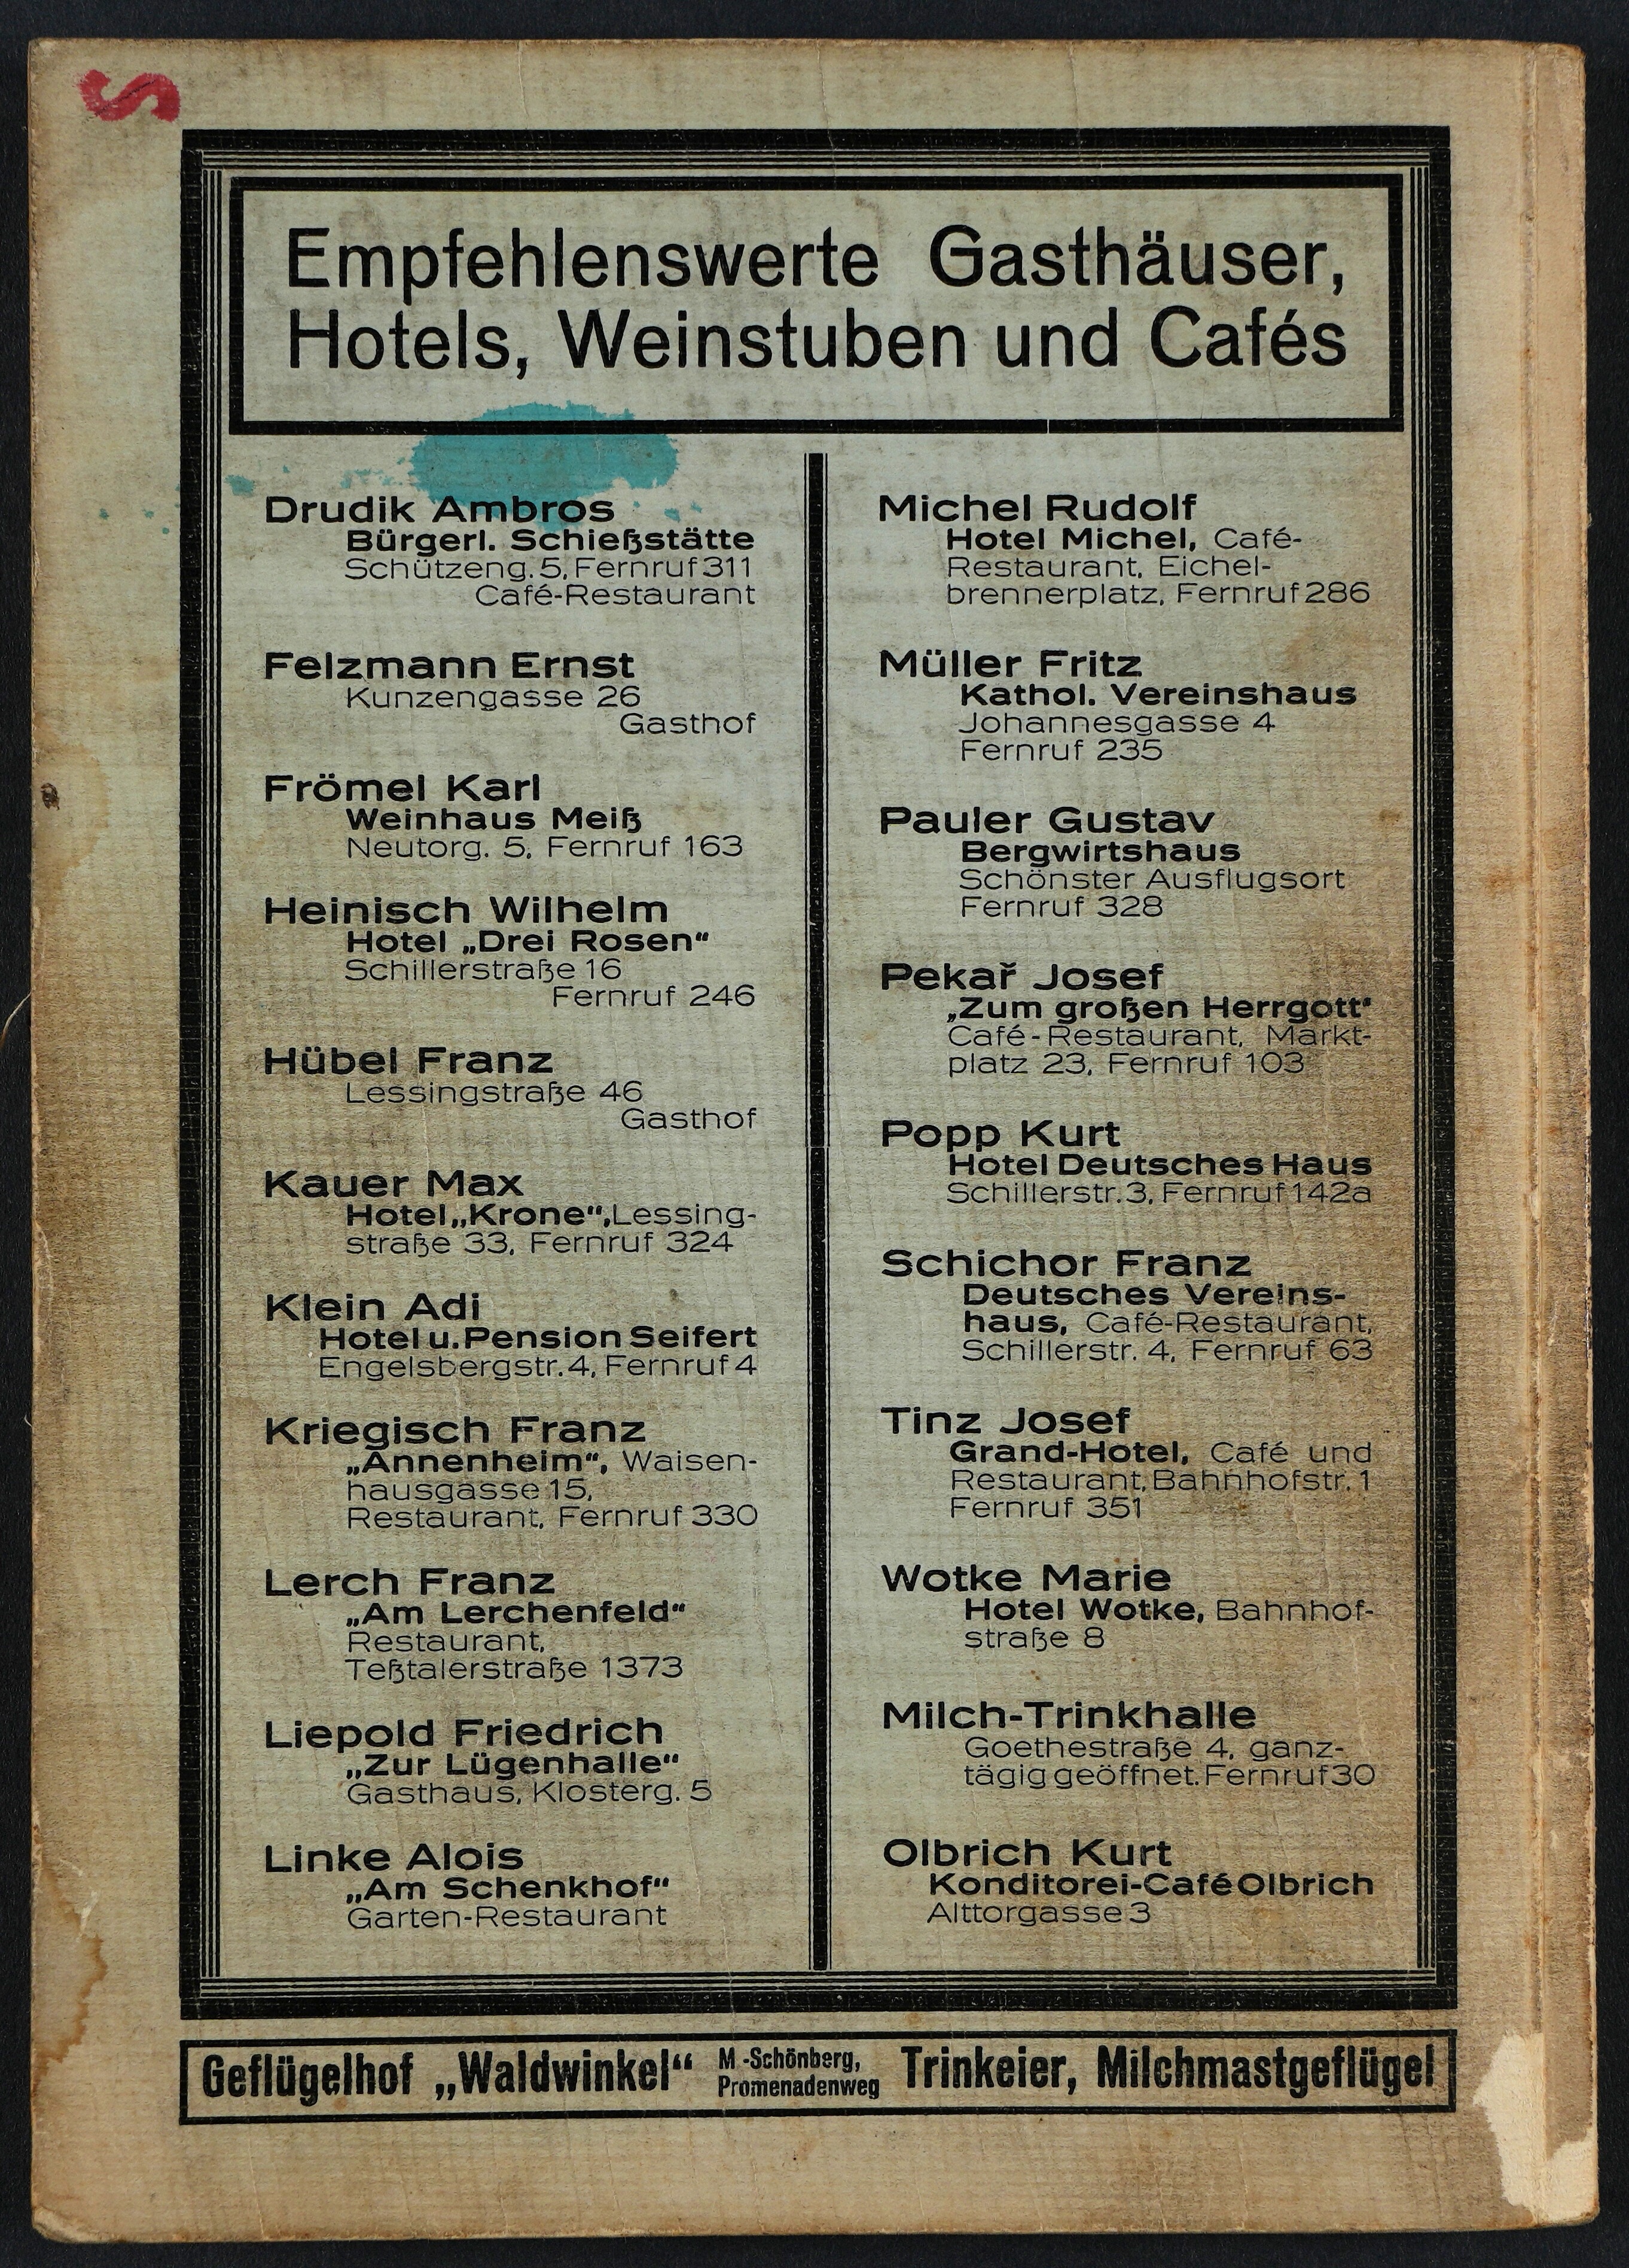 S
Empfehlenswerte Gasthäuser,
Hotels, Weinstuben und Cafés
Drudik Ambros
Bürgerl. Schießstätte
Schützeng. 5, Fernruf 311
Café-Restaurant
Felzmann Ernst
Kunzengasse 26
Gasthof
Frömel Karl
Weinhaus Meiß
Neutorg. 5, Fernruf 163
Heinisch Wilhelm
Hotel „Drei Rosen“
Schillerstraße 16
Fernruf 246
Hübel Franz
Lessingstraße 46
Gasthof
Kauer Max
Hotel „Krone“, Lessing-
straße 33, Fernruf 324
Klein Adi
Hotel u. Pension Seifert
Engelsbergstr. 4, Fernruf 4
Kriegisch Franz
„Annenheim“, Waisen-
hausgasse 15,
Restaurant, Fernruf 330
Lerch Franz
„Am Lerchenfeld“
Restaurant,
Teßtalerstraße 1373
Liepold Friedrich
„Zur Lügenhalle“
Gasthaus, Klosterg. 5
Linke Alois
„Am Schenkhof“
Garten-Restaurant
Michel Rudolf
Hotel Michel, Café-
Restaurant, Eichel-
brennerplatz, Fernruf 286
Müller Fritz
Kathol. Vereinshaus
Johannesgasse 4
Fernruf 235
Pauler Gustav
Bergwirtshaus
Schönster Ausflugsort
Fernruf 328
Pekař Josef
„Zum großen Herrgott“
Café-Restaurant, Markt-
platz 23, Fernruf 103
Popp Kurt
Hotel Deutsches Haus
Schillerstr. 3, Fernruf 142a
Schichor Franz
Deutsches Vereins-
haus, Café-Restaurant,
Schillerstr. 4, Fernruf 63
Tinz Josef
Grand-Hotel, Café und
Restaurant, Bahnhofstr. 1
Fernruf 351
Wotke Marie
Hotel Wotke, Bahnhof-
straße 8
Milch-Trinkhalle
Goethestraße 4, ganz-
tägig geöffnet. Fernruf 30
Olbrich Kurt
Konditorei-Café Olbrich
Alttorgasse 3
Geflügelhof „Waldwinkel“ M.-Schönberg, Promenadenweg Trinkeier, Milchmastgeflügel